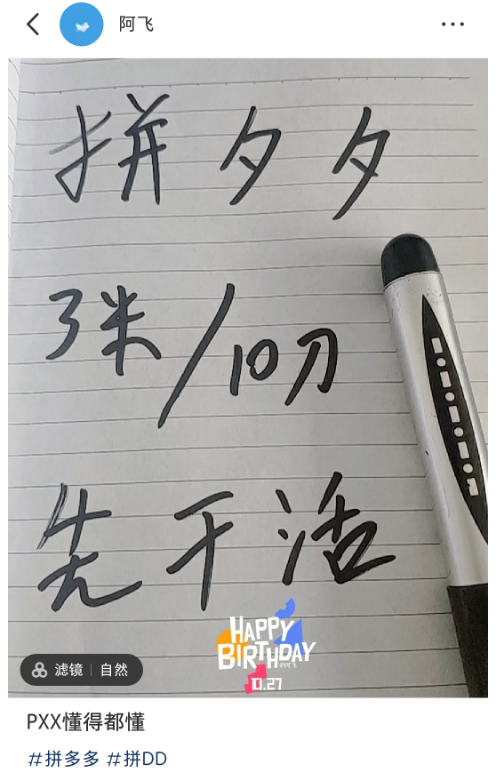 阿飞
拼夕夕
3米/10刀
先干活
HAPPY
BIRTHDAY
10.27
滤镜 | 自然
PXX懂得都懂
#拼多多 #拼DD